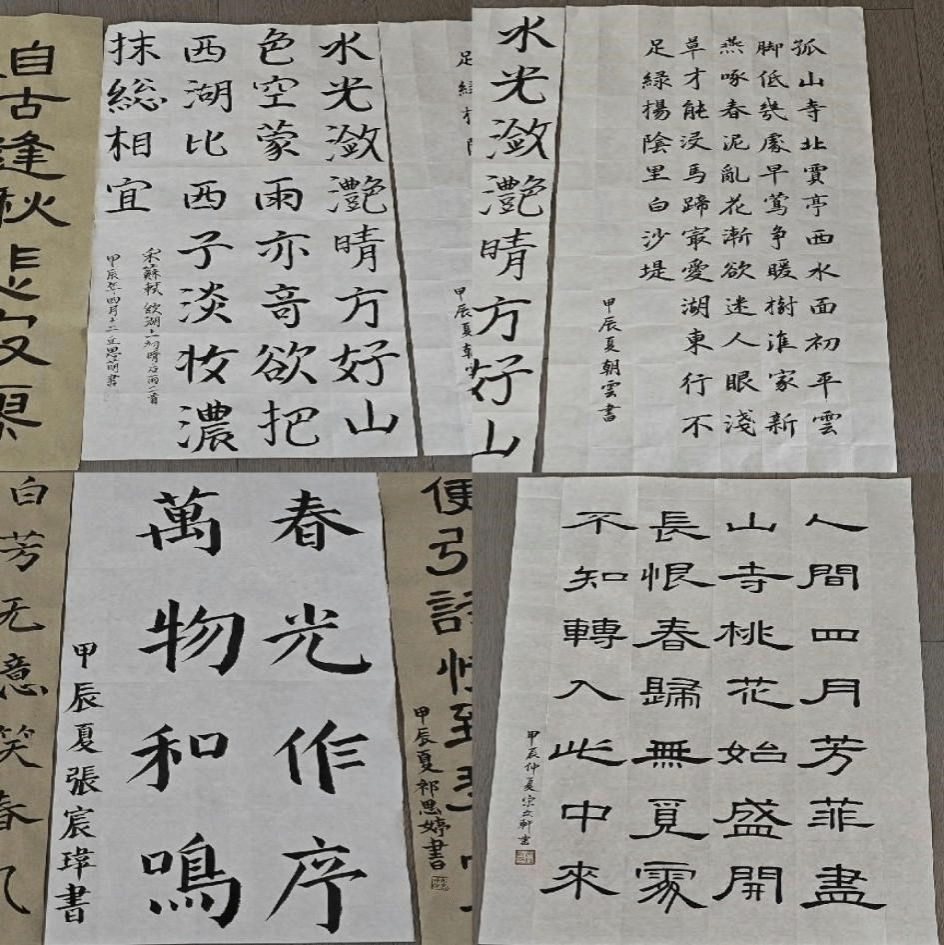 自古逢秋悲寂寥
水光瀲灔晴方好山
色空蒙雨亦奇欲把
西湖比西子淡妆濃
抹総相宜
宋蘇軾飲湖上初晴后雨二首
甲辰年四月十二
思萌書
足綠
甲辰夏朝
水光瀲灔晴方好山
孤山寺北賈亭西水面初平雲
脚低幾處早鶯争暖樹誰家新
燕啄春泥亂花漸欲迷人眼淺
草才能浸馬蹄最愛湖東行不
足綠楊陰里白沙堤
甲辰夏朝雲書
白芳无意笑春
春光作序
萬物和鳴
甲辰夏張宸瑋書
便引詩情到
甲辰夏祁思婷書
人間四月芳菲盡
山寺桃花始盛開
長恨春歸無覓處
不知轉入此中來
甲辰仲夏宗文軒書